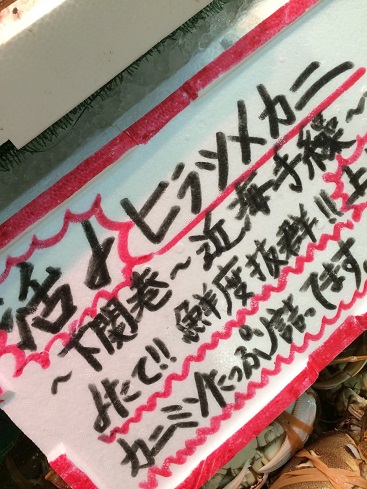 活〆ヒラツメカニ
～下関巻～近海手繰～
〆たて!!鮮度抜群!!上
カニミソたっぷり詰ってます。